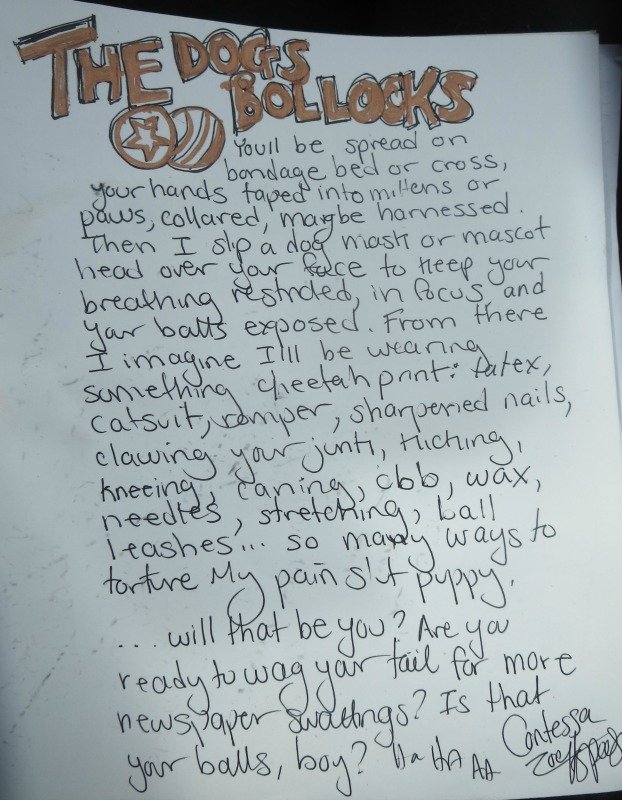 THE DOGS
BOLLOCKS
You'll be spread on
bondage bed or cross,
your hands taped into mittens or
paws, collared, maybe harnessed.
Then I slip a dog mask or mascot
head over your face to keep your
breathing restricted, in focus, and
your balls exposed. From there
I imagine I'll be wearing
something cheetah print: latex,
catsuit, romper, sharpened nails,
clawing your junk, kicking,
kneeing, caning, cbb, wax,
needles, stretching, ball
leashes... so many ways to
torture My pain slut puppy.
... will that be you? Are you
ready to wag your tail for more
newspaper swattings? Is that
your balls, boy? Ha HA AA
Contessa